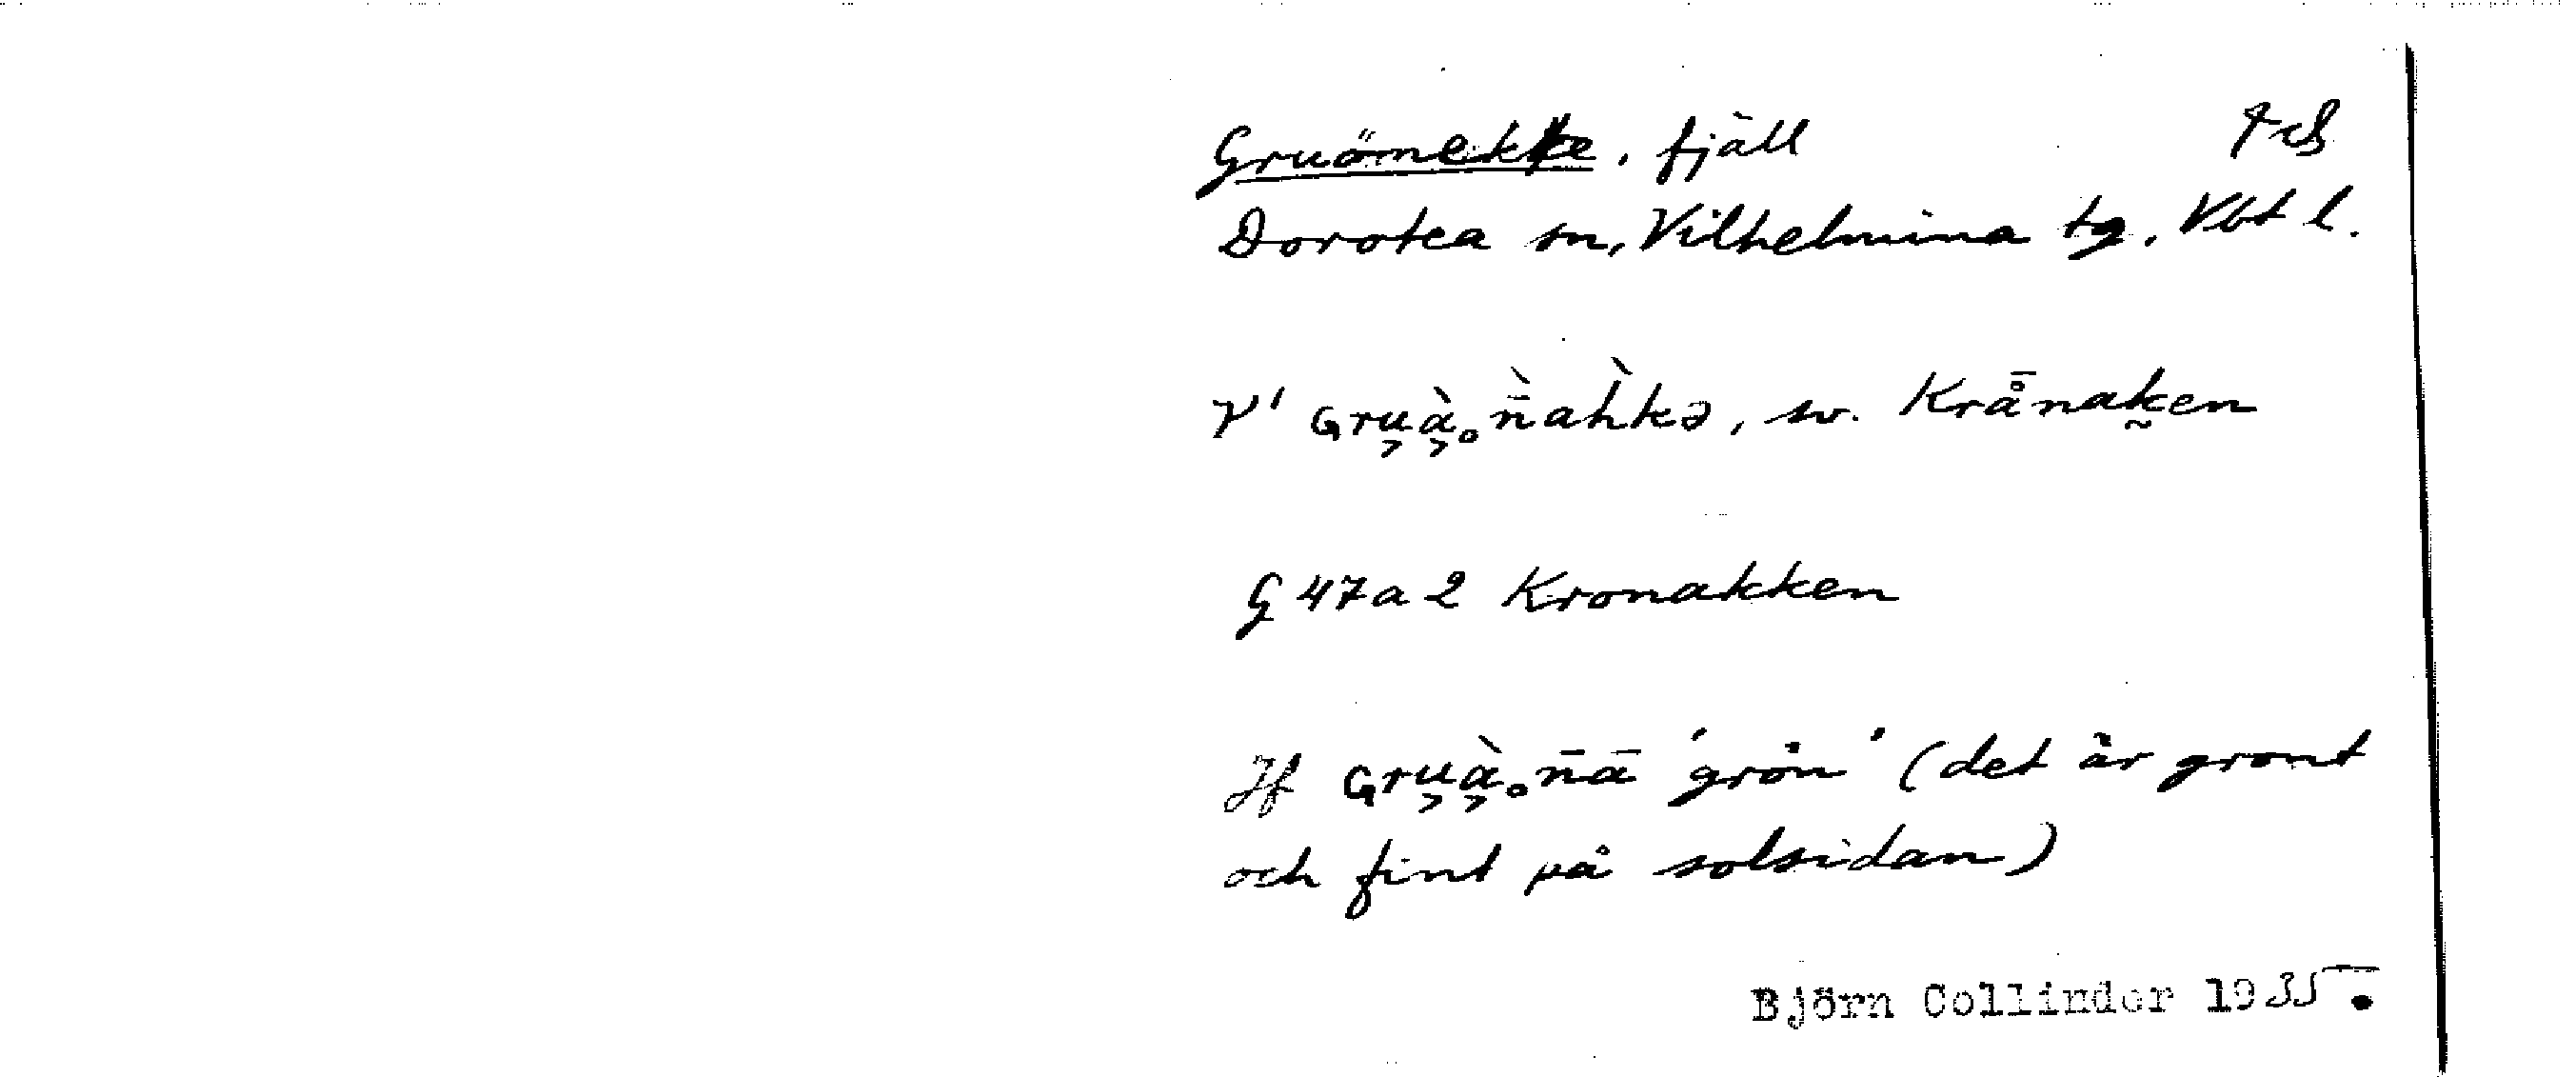 Gruömekke, fjäll
Dorotea sn, Vilhelmina tg, Vbt l.
V' ɢru̘à̘.n̄̀ah̀kə, sv. Krå̄nak̰en
G 47a2 Kronakken
Jf ɢru̘à̘.n̄ā 'grön' (det är grönt
och fint på solsidan)
Björn Collinder 1935.